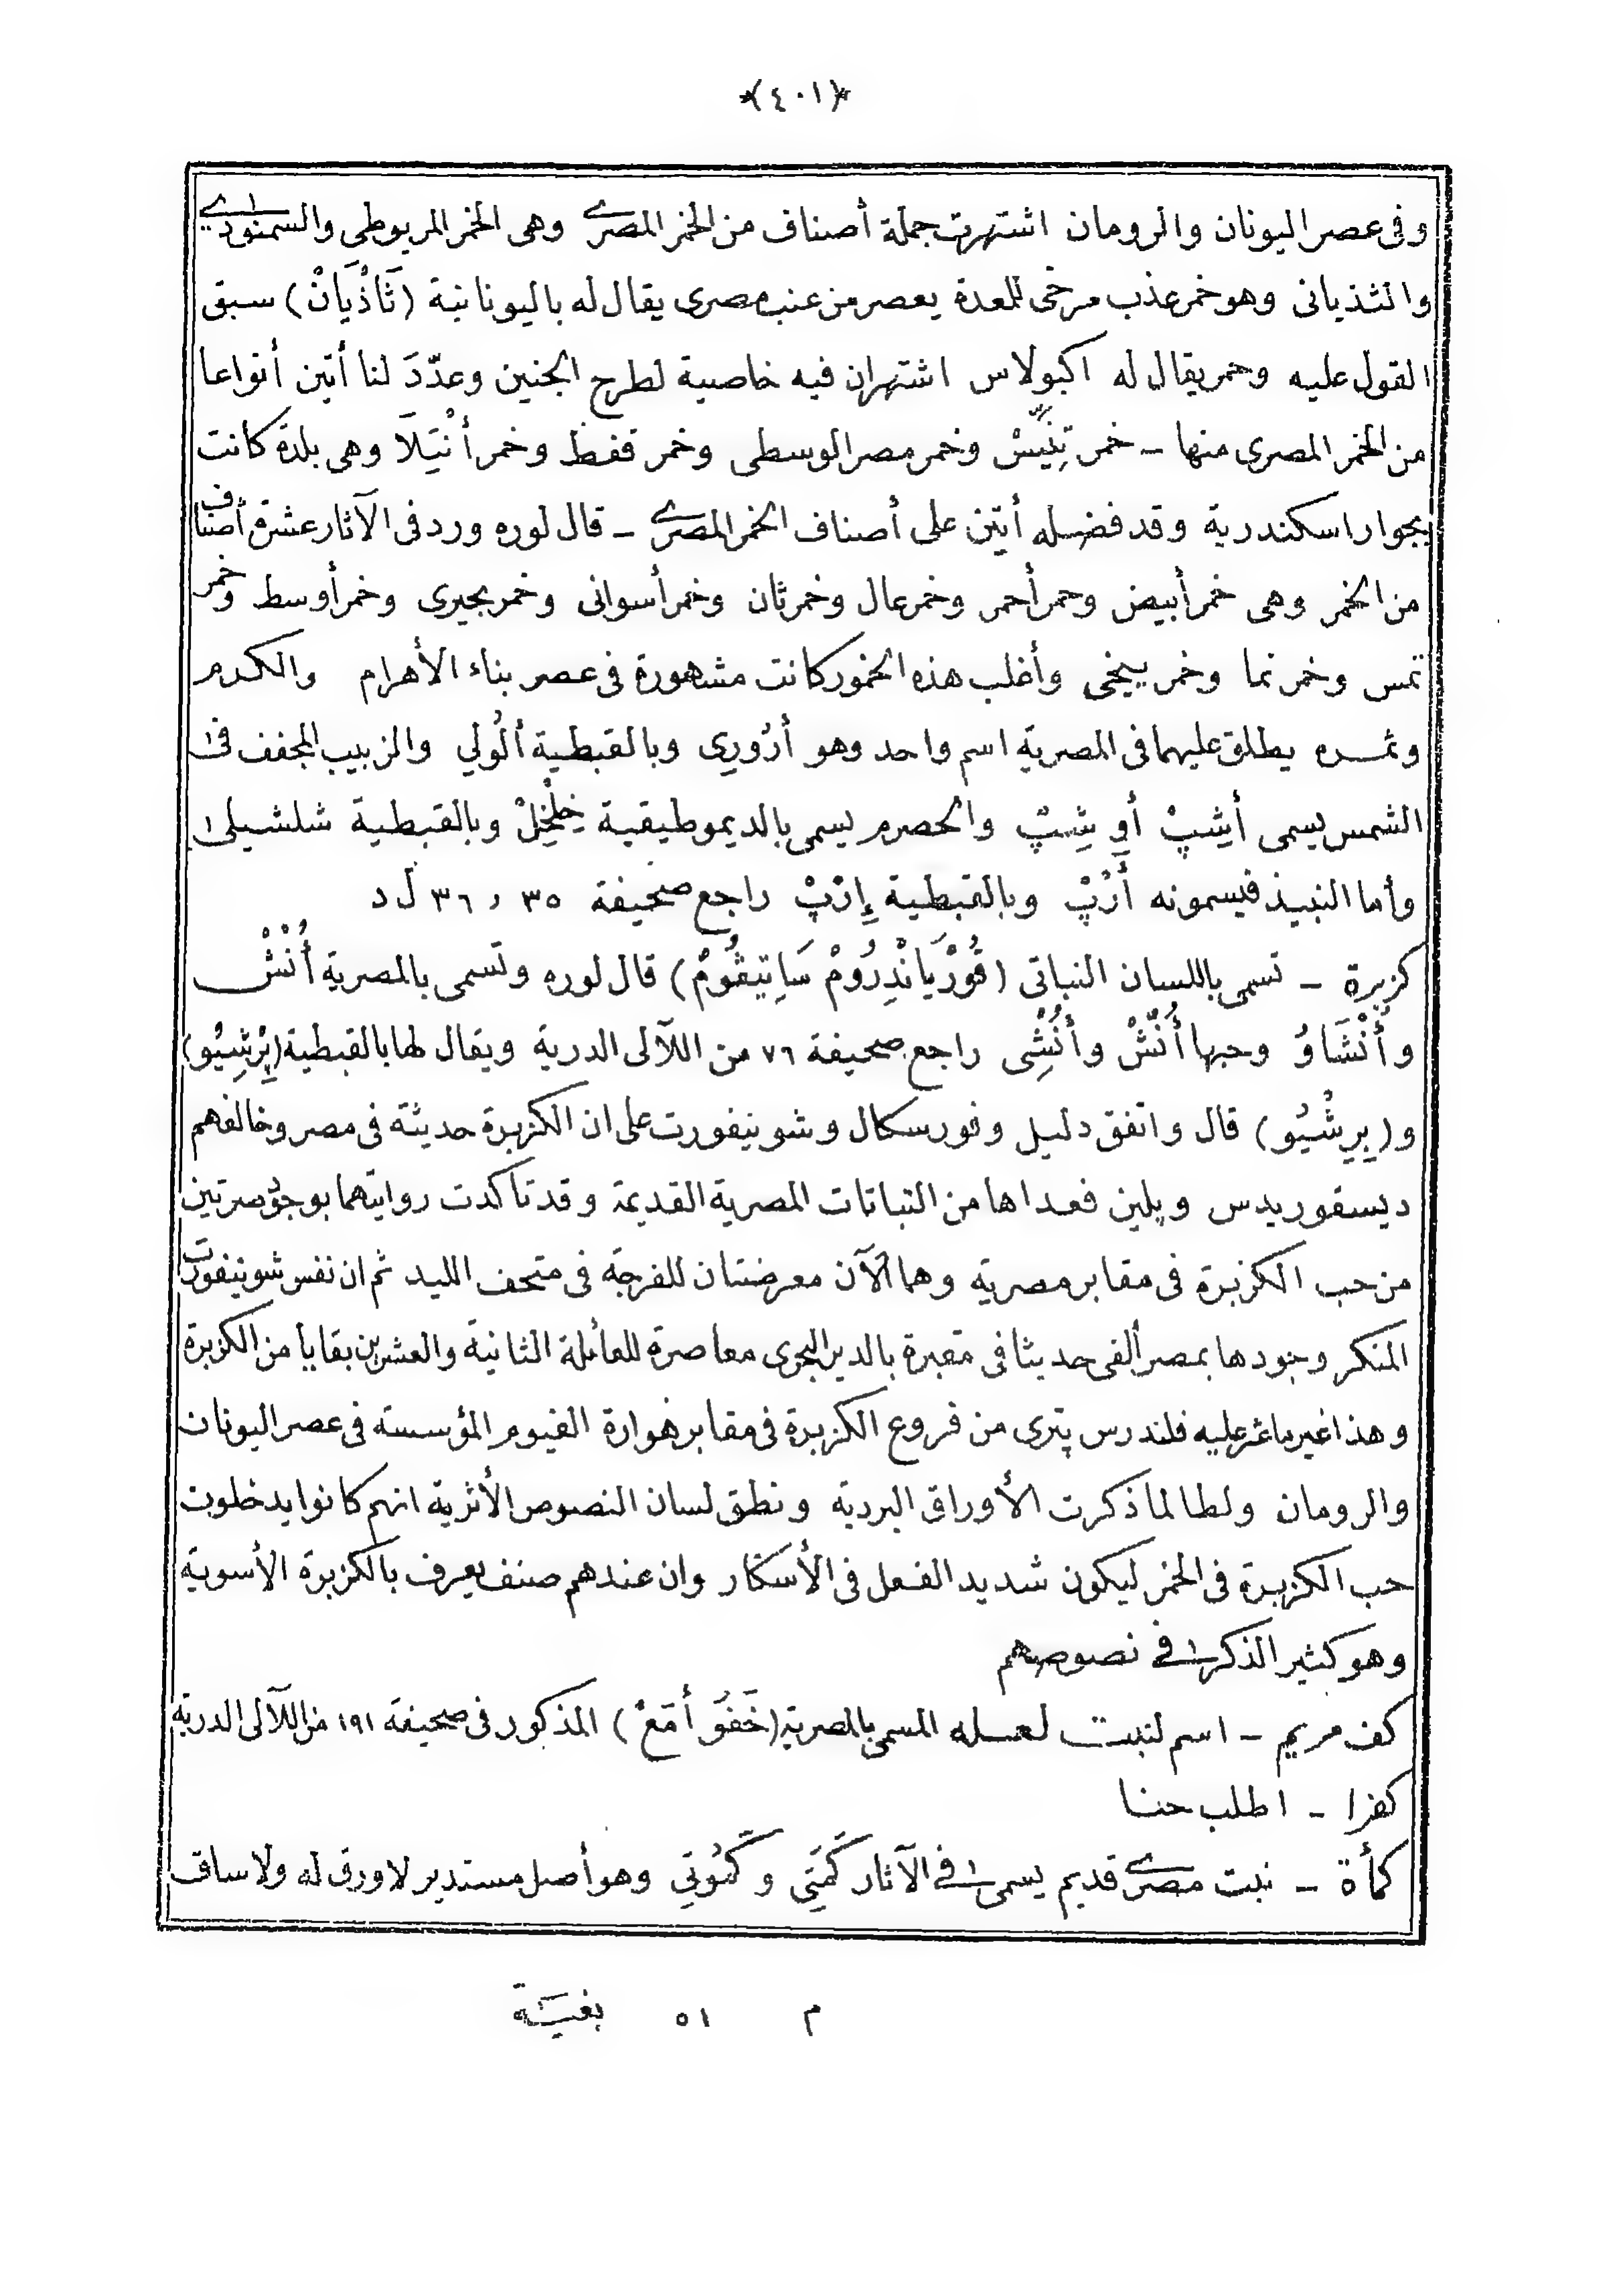 *(٤٠١)*
وفى عصر اليونان والرومان اشتهرت جملة أصناف من الخمر المصرى وهى الخمر المريوطى والسمنودى
والثذيانى وهو خمر عذب مرخى للمعدة يعصر من عنب مصرى يقال له باليونانية (ثَاذْيَانْ) سبق
القول عليه وخمر يقال له اكبولاس اشتهران فيه خاصية لطرح الجنين وعدّدَ لنا أتين أنواعا
من الخمر المصرى منها ـ خمر تِنِّيسْ وخمر مصر الوسطى وخمر قفط وخمر أنْتِيَلاَ وهى بلدة كانت
بجوار اسكندرية وقد فضله أتين على أصناف الخمر المصرى ـ قال لوره ورد فى الآثار عشرة أصناف
من الخمر وهى خمر أبيض وخمر أحمر وخمر عال وخمر ثان وخمر أسوانى وخمر بحيرى وخمر أوسط وخمر
تمس وخمر نما وخمر يبخى وأغلب هذه الخمور كانت مشهورة فى عصر بناء الأهرام والكرم
وثمره يطلق عليهما فى المصرية اسم واحد وهو أرُورِى وبالقبطية ألُولِي والزبيب المجفف فى
الشمس يسمى أَشِپْ أو شِپْ والحصرم يسمى بالديموطيقية خِلْخِلْ وبالقبطية شلشيلى
وأما النبيذ فيسمونه أَرُپْ وبالقبطية إِرْپْ راجع صحيفة ٣٥ و ٣٦ ل د
كزبرة ـ تسمى باللسان النباتى (قُورْيَانْدِرُومْ سَاتِيڤُومْ) قال لوره وتسمى بالمصرية أُنْشْ
وأُنْشَاوُ وحبها أُنْشْ وأُنْشِى راجع صحيفة ٧٦ من اللآلى الدرية ويقال لها بالقبطية (بِرْشِيُو)
و(بِرِشْيُو) قال واتفق دليل وفورسكال وشوينفورت على ان الكزبرة حديثة فى مصر وخالفهم
ديسقوريدس وپلين فعداها من النباتات المصرية القديمة وقد تأكدت روايتهما بوجود صرتين
من حب الكزبرة فى مقابر مصرية وهما الآن معرضتان للفرجة فى متحف الليد ثم ان نفس شوينفورت
المنكر وجودها بمصر ألفى حديثا فى مقبرة بالدير البحرى معاصرة للعائلة الثانية والعشرين بقايا من الكزبرة
وهذا غير ما عثر عليه فلندرس پترى من فروع الكزبرة فى مقابر هوارة الفيوم المؤسسة فى عصر اليونان
والرومان ولطالما ذكرت الأوراق البردية ونطق لسان النصوص الأثرية انهم كانوا يدخلون
حب الكزبرة فى الخمر ليكون شديد الفعل فى الأسكار وان عندهم صنف يعرف بالكزبرة الأسوية
وهو كثير الذكر فى نصوصهم
كف مريم ـ اسم لنبت لعله المسمى بالمصرية (خَفْوَ أمَعْ) المذكور فى صحيفة ١٩١ من اللآلى الدرية
كفرا ـ اطلب حنا
كمأة ـ نبت مصرى قديم يسمى فى الآثار كَمَتِي وكَمُوتِي وهو أصل مستدير لا ورق له ولا ساق
م ٥١ بغية